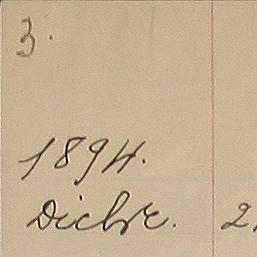 3.
1894.
Dicbre. 2.